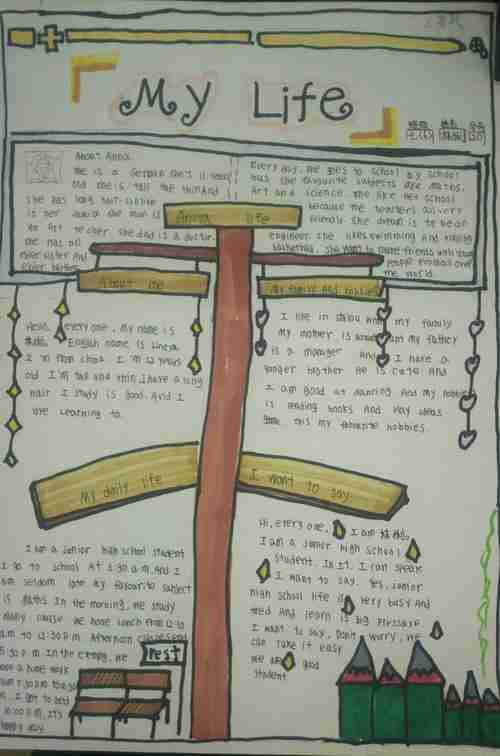 My Life
About Anna.
He is a German she's 11 years
old she is tall and thin and
she has long hair
is her
An Art teacher she dad is a doctor
she has an
elder sister and
elder brother
Every day, he goes to school by school
bus she favourite subjects are maths,
Art and science she like her school
because the teachers
friends she dream is to be an
engineer, she likes swimming and
basketball, she want to make friends with young
people from all over
the world.
Anna life
About me
My family and hobbies
Hello, every one, my name is
English name is
I'm from china I'm 12 years
old I'm tall and thin I have a long
hair I study is good. And I
are learning to.
I like in with my family
My mother is my father
is a manager And I have a
younger brother He is cute And
I am good at dancing And my hobbies
is reading books And play
this my favourite hobbies.
My daily life
I want to say
I am a junior high school student
I go to school At 6:30 a.m. And I
am seldom late my favourite subject
is maths In the morning, we study
we have lunch from 12:10
a.m to 12:30 p.m. Afternoon
5:30 p.m. In the we
home work
I got to bed
10:00 p.m, It's
happy day
rest
Hi, every one, I am
I am a junior high school
student. In it, I can speak
I want to say. Yes, junior
high school life is very busy And
tired And learn is big pressure
I want to say, Don't worry, we
can take it easy
we are good
student